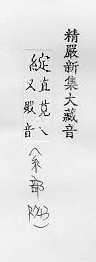 精嚴新集大藏音
綻
直莧
又殿音
（糸部